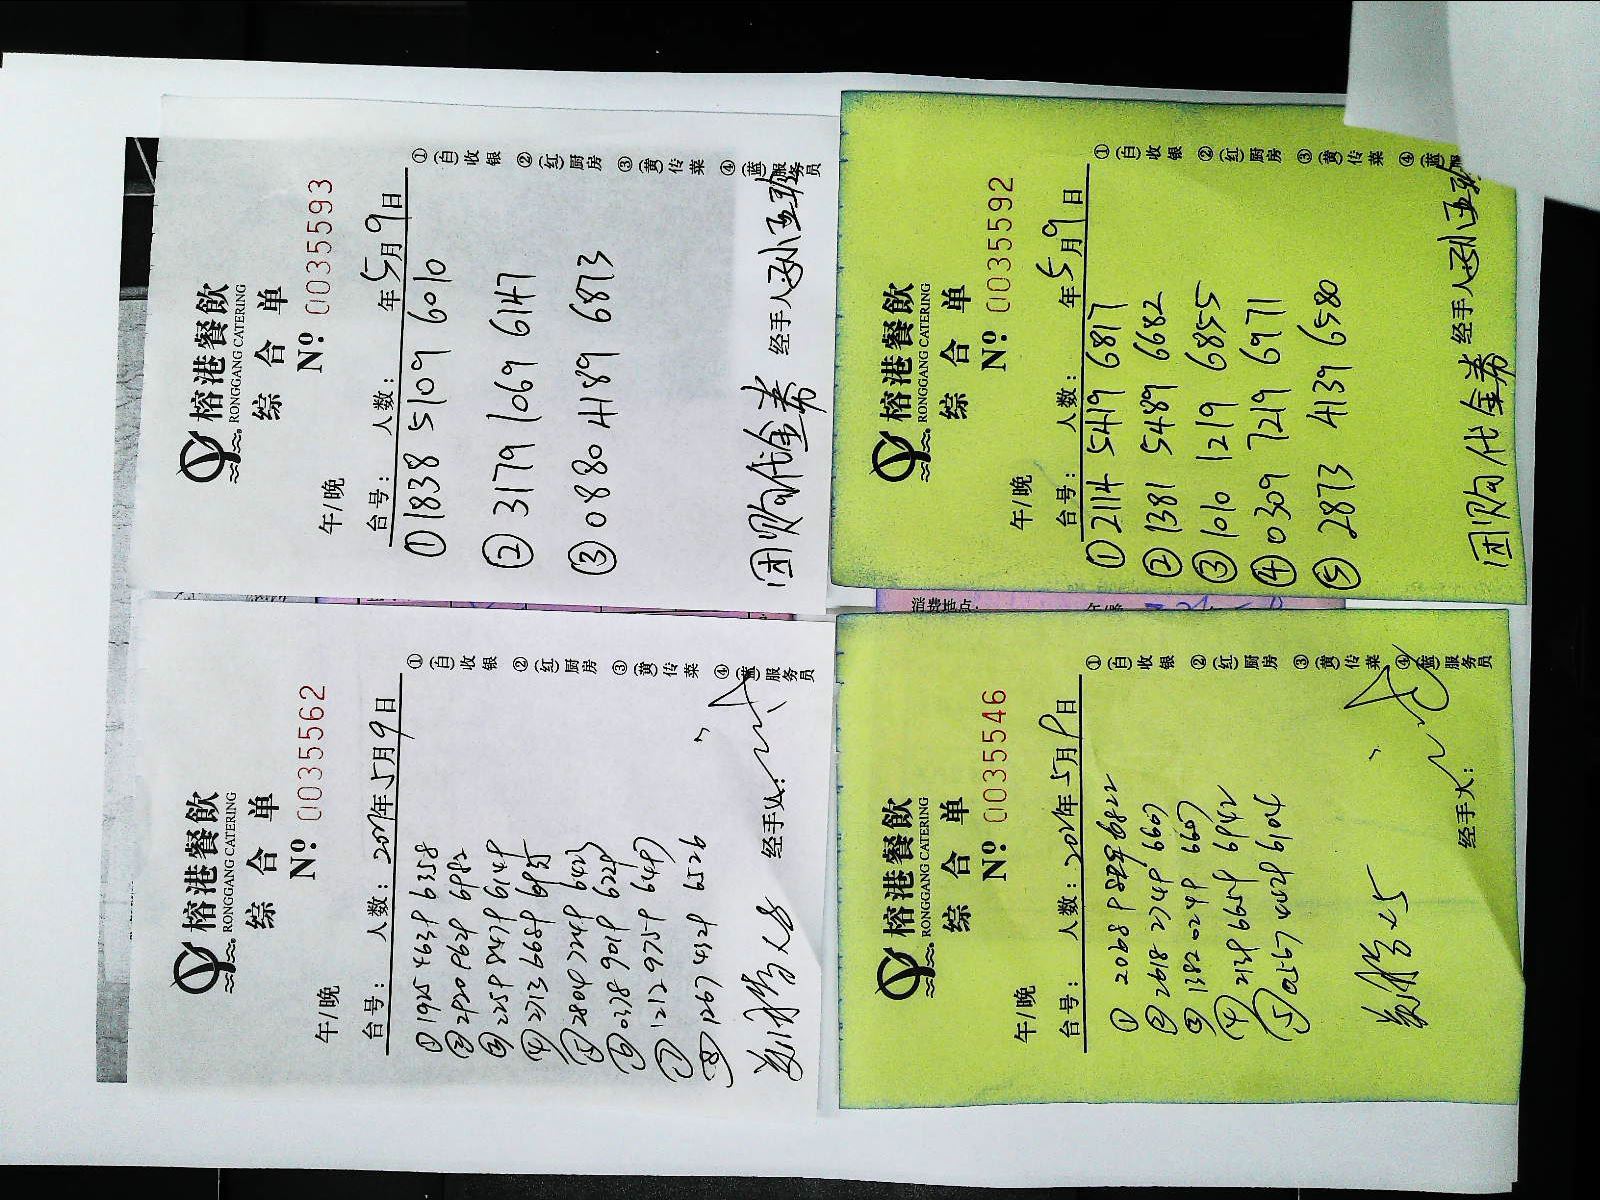 榕港餐飲
RONGGANG CATERING
综合单
Nº: 0035593
午/晚
台号: 人数: 年5月9日
①1838 5109 6010
②3179 1069 6147
③0880 4189 6873
团购代金券 经手人:
①(白)收银 ②(红)厨房 ③(黄)传菜 ④(蓝)服务员
榕港餐飲
RONGGANG CATERING
综合单
Nº: 0035592
午/晚
台号: 人数: 年5月9日
①2114 5419 6817
②1381 5489 6682
③1010 1219 6855
④0309 7219 6971
⑤2873 4139 6580
团购代金券 经手人
①(白)收银 ②(红)厨房 ③(黄)传菜 ④(蓝)服
榕港餐飲
RONGGANG CATERING
综合单
Nº: 0035562
午/晚
台号: 人数: 年5月9日
①1925 4639 6358
②
③2259 8479 6148
④2713 6689
⑤2804 0 7249 6423
⑥0378 9019 6229
⑦1212 9759 6449
⑧1267 4329 6526
经手人:
①(白)收银 ②(红)厨房 ③(黄)传菜 ④(蓝)服务员
榕港餐飲
RONGGANG CATERING
综合单
Nº: 0035546
午/晚
台号: 人数: 年5月9日
①2068 6822
②2618 2749 6607
③1382 0249 6607
④2139 6659 6942
⑤6104
×5
经手人:
①(白)收银 ②(红)厨房 ③(黄)传菜 ④(蓝)服务员
消费地点: